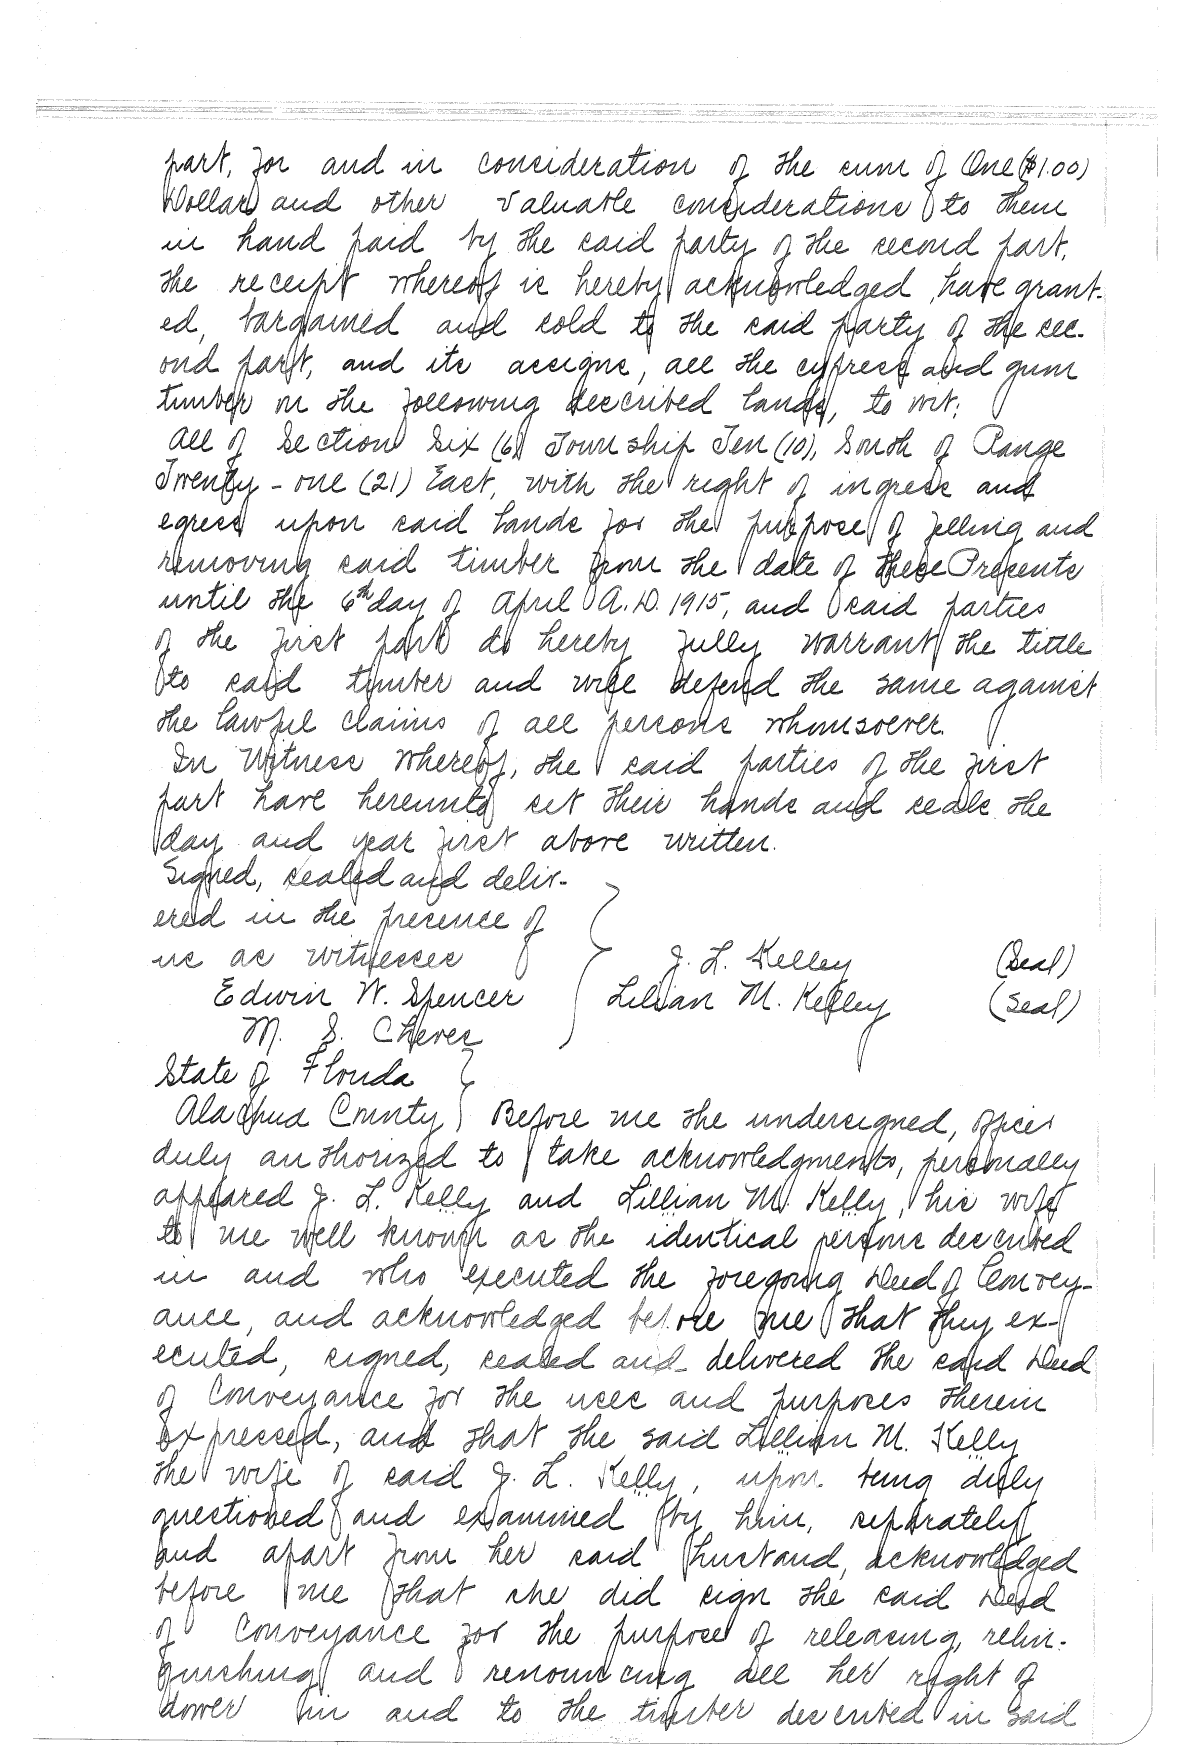 part, for and in consideration of the sum of One ($1.00)
Dollar and other valuable considerations to them
in hand paid by the said party of the second part,
the receipt whereof is hereby acknowledged, have grant-
ed, bargained and sold to the said party of the sec-
ond part, and its assigns, all the cypress and gum
timber on the following described lands, to wit:
All of Section Six (6) Township Ten (10), South of Range
Twenty-one (21) East, with the right of ingress and
egress upon said lands for the purpose of felling and
removing said timber from the date of these Presents
until the 6th day of April A.D. 1915, and said parties
of the first part do hereby fully warrant the tittle
to said timber and will defend the same against
the lawful claims of all persons whomsoever.
In Witness Whereof, the said parties of the first
part have hereunto set their hands and seals the
day and year first above written.
Signed, sealed and deliv-
ered in the presence of
us as witnesses
J. L. Kelley (Seal)
Edwin W. Spencer Lilian M. Kelley (Seal)
M. S. Cheves
State of Florida
Alachua County Before me the undersigned, officer
duly authorized to take acknowledgments, personally
appeared J. L. Kelly and Lillian M. Kelly, his wife
to me well known as the identical persons described
in and who executed the foregoing Deed of Convey-
ance, and acknowledged before me that they ex-
ecuted, signed, sealed and delivered the said Deed
of Conveyance for the uses and purposes therein
expressed, and that the said Lillian M. Kelly
the wife of said J. L. Kelly, upon being duly
questioned and examined by him, separately
and apart from her said husband, acknowledged
before me that she did sign the said Deed
of Conveyance for the purpose of releasing, relin-
quishing and renouncing all her right of
dower in and to the timber described in said